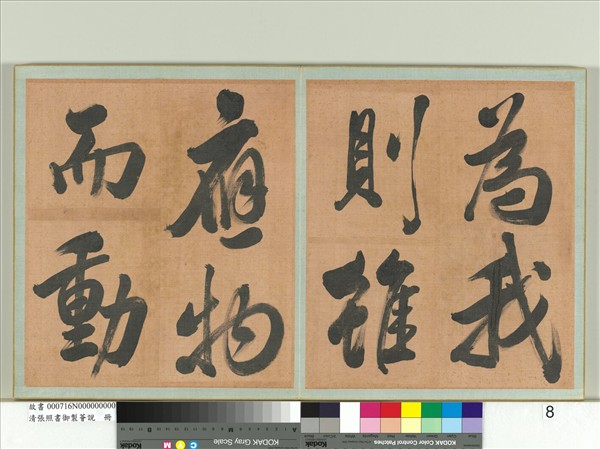 為我
則雖
應物
而動
故書 000716N000000000
清張照書御製箑說 冊
8
KODAK Gray Scale
KODAK Color Control Patches
Kodak